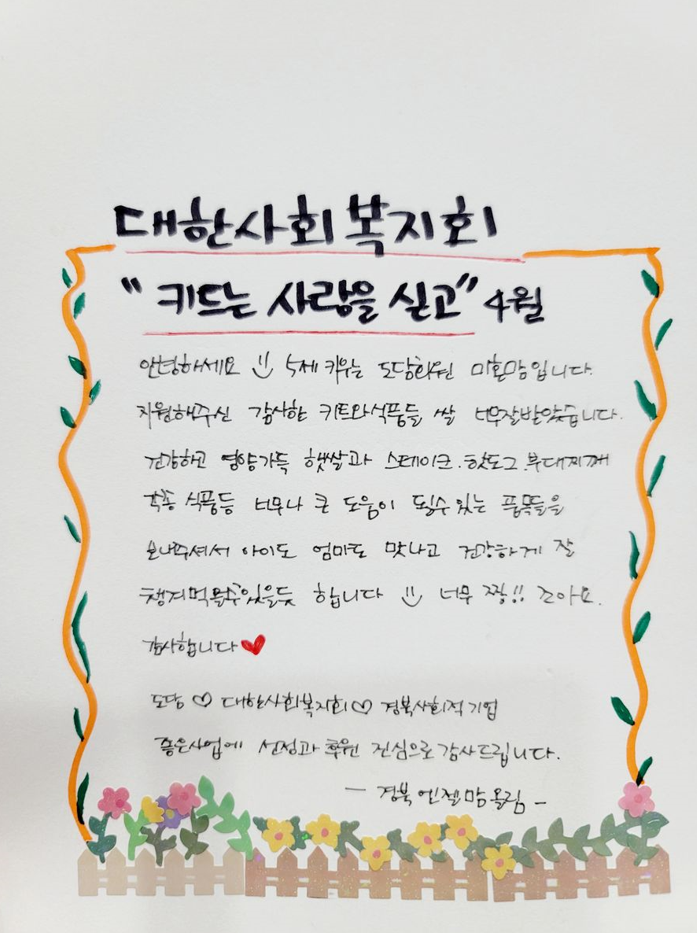 대한사회복지회
"키드는 사랑을 싣고" 4월
안녕하세요 :) 5세 키우는 도담회원 미혼맘입니다.
지원해주신 감사한 키트와식품들 쌀 너무잘받았습니다.
건강하고 영양가득 햇쌀과 스테이크.핫도그.부대찌깨
각종 식품등 너무나 큰 도움이 될수있는 품목들을
보내주셔서 아이도 엄마도 맛나고 건강하게 잘
챙겨먹을수있을듯 합니다 :) 너무 짱!! 조아요.
감사합니다♥
도담♡대한사회복지회♡경북사회적기업
좋은사업에 선정과 후원 진심으로감사드립니다.
- 경북 엔젤맘올림 -